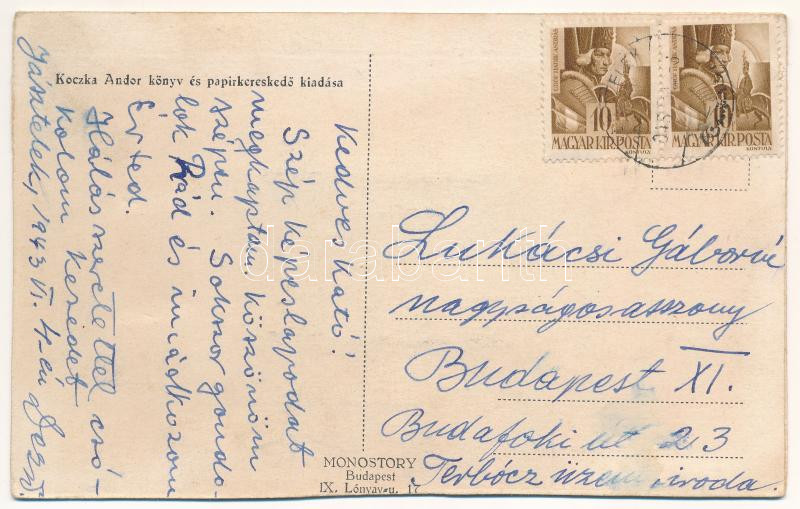 Koczka Andor könyv és papirkereskedő kiadása
Kedves Kató!
Szép képeslapodat
megkaptam. Köszönöm
szépen. Sokszor gondo-
lok Rád és imádkozom
Érted.
Hálás szeretettel csó-
kolom kezedet
Jásztelek, 1943 VI. 4-én Dezső.
MONOSTORY
Budapest
IX. Lónyay-u. 17
10
MAGYAR KIR. POSTA
10
MAGYAR KIR. POSTA
Lukácsi Gáborné
nagyságos asszony
Budapest XI.
Budafoki út 23
Terbócz üzemi iroda.
darabanth